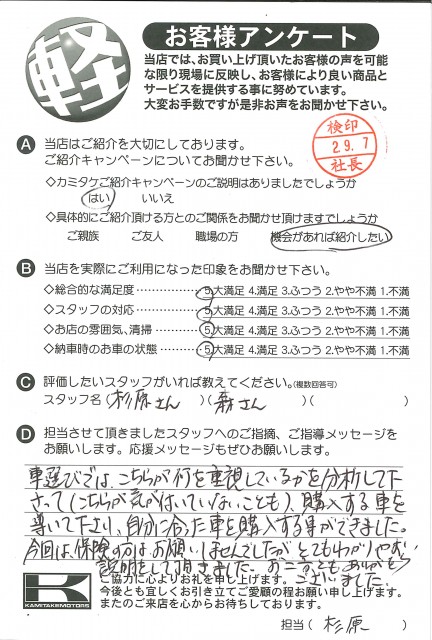 軽
お客様アンケート
当店では、お買い上げ頂いたお客様の声を可能
な限り現場に反映し、お客様により良い商品と
サービスを提供する事に努めています。
大変お手数ですが是非お声をお聞かせ下さい。
検印
29.7
社長
A 当店はご紹介を大切にしております。
ご紹介キャンペーンについてお聞かせ下さい。
◇カミタケご紹介キャンペーンのご説明はありましたでしょうか
はい いいえ
◇具体的にご紹介頂ける方とのご関係をお聞かせ頂けますでしょうか
ご親族 ご友人 職場の方 機会があれば紹介したい
B 当店を実際にご利用になった印象をお聞かせ下さい。
◇総合的な満足度 ……………… 5.大満足 4.満足 3.ふつう 2.やや不満 1.不満
◇スタッフの対応 ……………… 5.大満足 4.満足 3.ふつう 2.やや不満 1.不満
◇お店の雰囲気、清掃 ………… 5.大満足 4.満足 3.ふつう 2.やや不満 1.不満
◇納車時のお車の状態 ………… 5.大満足 4.満足 3.ふつう 2.やや不満 1.不満
C 評価したいスタッフがいれば教えてください。(複数回答可)
スタッフ名(杉原さん )(森さん )( )
D 担当させて頂きましたスタッフへのご指摘、ご指導メッセージを
お願いします。応援メッセージもぜひお願いします。
車選びでは、こちらが何を重視しているかを分析して下
さって(こちらが気が付いていないことも)、購入する車を
導いて下さり、自分に合った車を購入する事ができました。
今回は、保険の方はお願いしませんでしたが とてもわかりやすい
説明をして頂きました。お二方とも ありがとう
ございました。
K
KAMITAKE MOTORS
ご協力に心よりお礼を申し上げます。
今後とも宜しくお引き立てご愛顧の程お願い申し上げます。
またのご来店を心からお待ちしております。
担当( 杉原 )